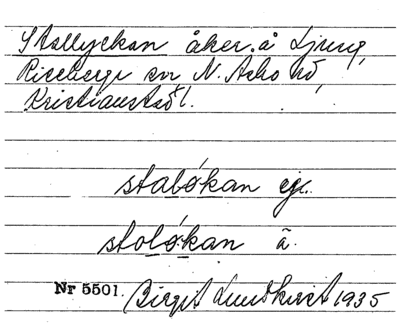 Stallyckan åker å Ljung,
Riseberga sn N. Åsbo hd,
Kristianstads l.
stalökan ej.
stolökan ä
Nr 5501. Birgit Lundkvist 1935